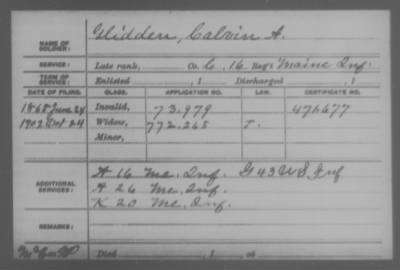 NAME OF SOLDIER: Glidden, Calvin A.
SERVICE: Late rank, Co. C, 16 Reg't Maine Inf.
TERM OF SERVICE: Enlisted , 1 Discharged , 1
DATE OF FILING. CLASS. APPLICATION NO. LAW. CERTIFICATE NO.
1865 June 24 Invalid, 73.979 476677
1902 Oct 24 Widow, 772.265
Minor,
ADDITIONAL SERVICES: A 16 Me. Inf. G 43 U S Inf
A 26 Me. Inf.
K 20 Me. Inf.
REMARKS:
Died , 1 , at